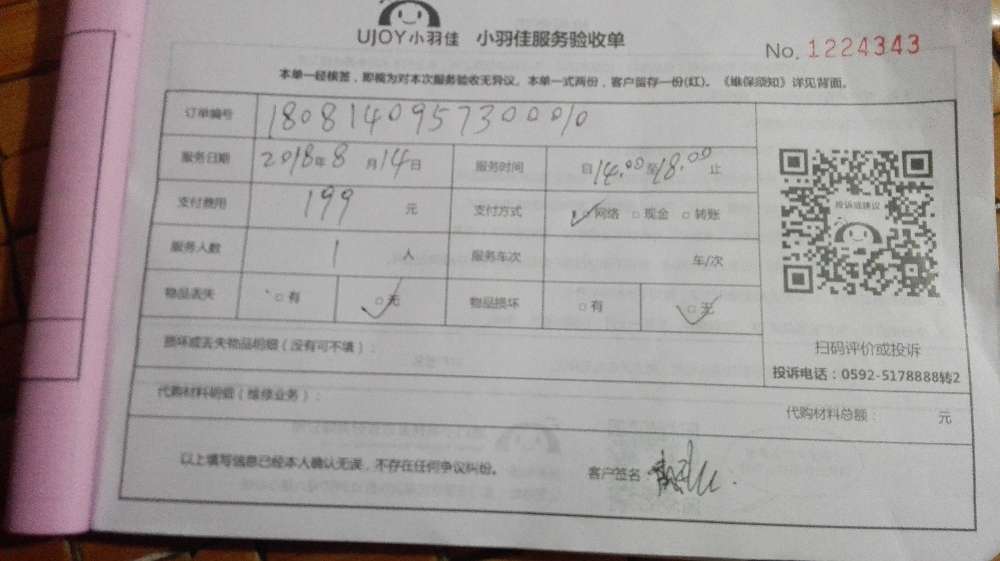 UJOY小羽佳 小羽佳服务验收单
No. 1224343
本单一经核签，即视为对本次服务验收无异议。本单一式两份，客户留存一份(红)。《维保须知》详见背面。
订单编号 180814095730000010
服务日期 2018年8月14日 服务时间 自14:00至18:00止
支付费用 199元 支付方式 □网络 □现金 □转账
服务人数 1人 服务车次 车/次
物品丢失 □有 □无 物品损坏 □有 □无
投诉或建议
扫码评价或投诉
投诉电话：0592-5178888转2
损坏或丢失物品明细（没有可不填）：
代购材料明细（维修业务）：
代购材料总额： 元
以上填写信息已经本人确认无误，不存在任何争议纠纷。
客户签名：